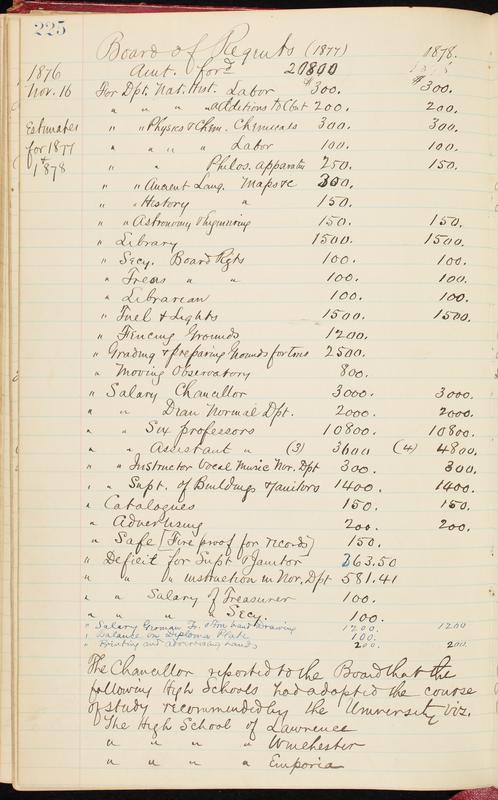 225
Board of Regents (1877) 1878.
1876 Amt. ford 20800
Nov. 16 For Dpt. Nat. Hist. Labor $300. $300.
" " " " Additions to Cbnt 200. 200.
Estimates " " Physics & Chem. Chemicals 300. 300.
for 1877 " " " " Labor 100. 100.
& 1878 " " Philos. Apparatus 250. 150.
" " Ancient Lang. Maps &c 300.
" " History " 150.
" " Astronomy & Engineering 150. 150.
" Library 1500. 1500.
" Secy. Board Rgts 100. 100.
" Treas " " 100. 100.
" Librarian 100. 100.
" Fuel & Lights 1500. 1500.
" Fencing Grounds 1200.
" Grading & preparing Grounds for trees 2500.
" Moving Observatory 800.
" Salary Chancellor 3000. 3000.
" " Dean Normal Dpt. 2000. 2000.
" " Six professors 10800. 10800.
" " Assistant " (3) 3600 (4) 4800.
" " Instructor Vocal Music Nor. Dpt 300. 300.
" " Supt. of Buildings & Janitors 1400. 1400.
" Catalogues 150. 150.
" Advertising 200. 200.
" Safe [Fire proof for records] 150.
" Deficit for Supt & Janitor 363.50
" " " instruction in Nor. Dpt 581.41
" " Salary of Treasurer 100.
" " " " Secy. 100.
" Salary German Fr. & Free hand Drawing 1200. 1200
" Balance on Diploma Plate 100.
" Printing and advertising lands 200. 200
The Chancellor reported to the Board that the
following High Schools had adopted the course
of study recommended by the University viz.
The High School of Lawrence
" " " " Winchester
" " " " Emporia